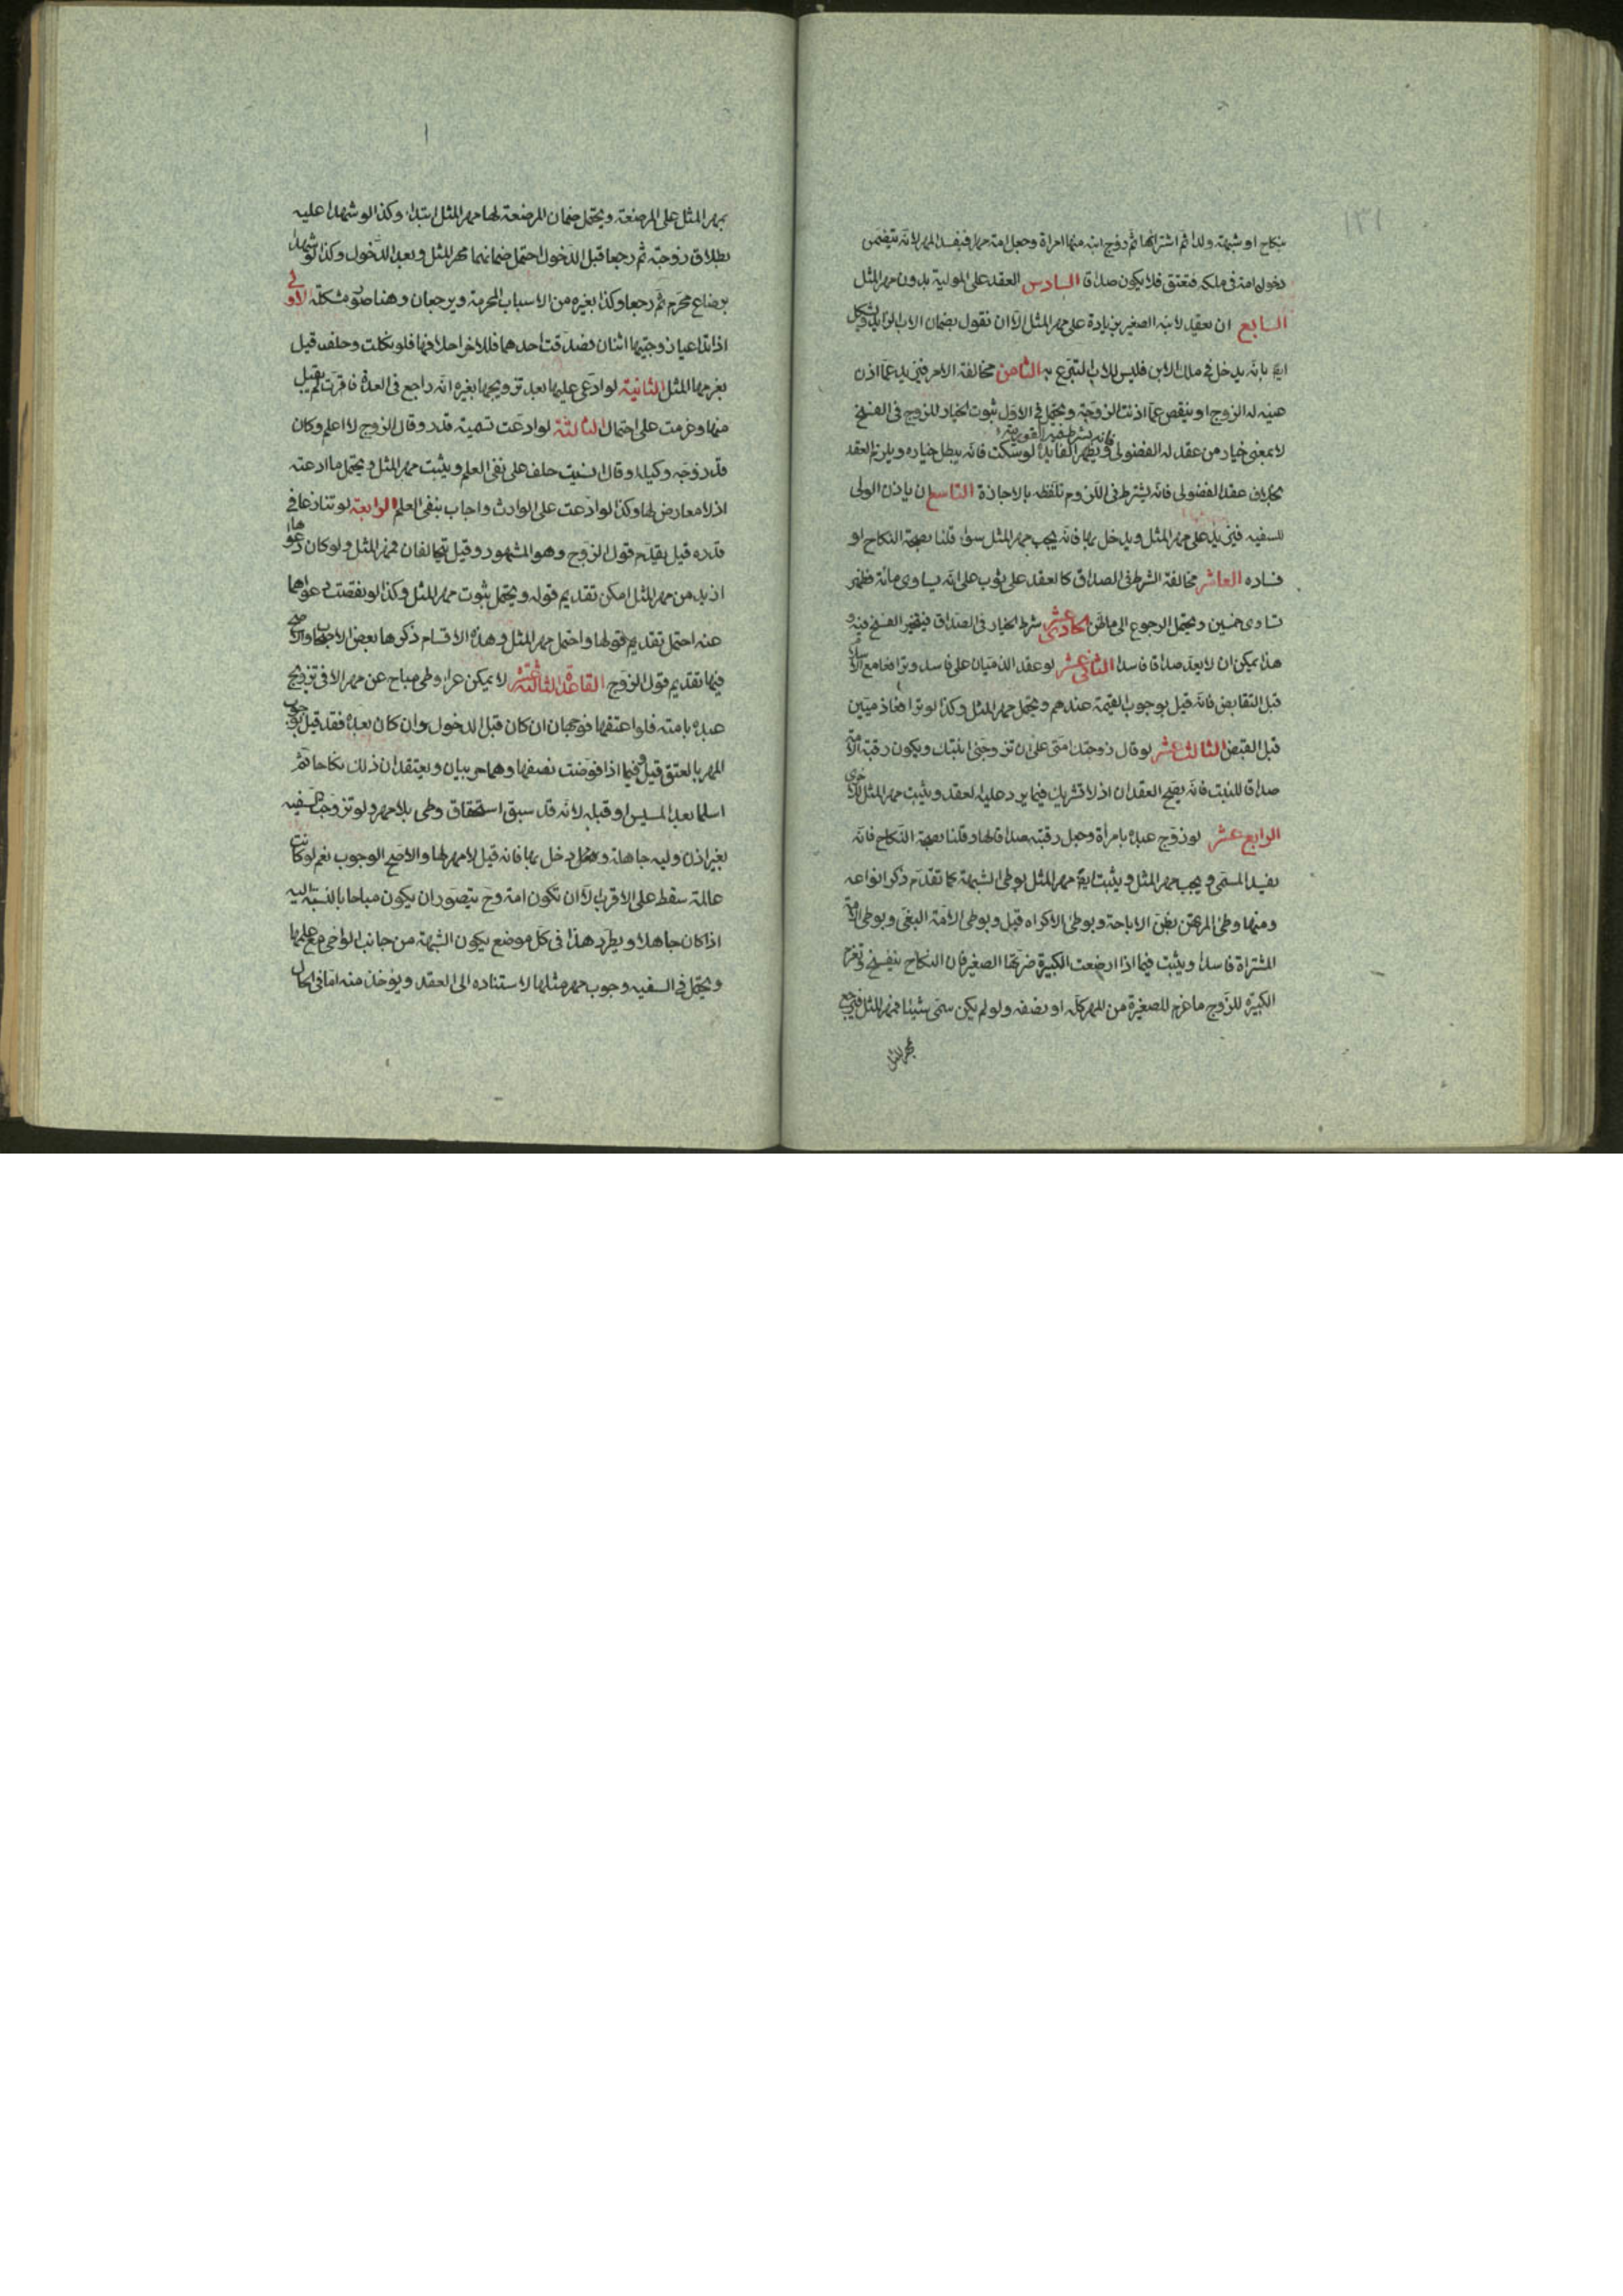 ١٣١
بنكاح او شبهة ولدا ثم اشتراها ثم زوج ابنه منها امراة وجعل امه مهرا فيفسد المهر لانه يتضمن
دخول امه فى ملكه فتعتق فلا يكون صداقا السادس العقد على المولية بدون مهر المثل
السابع ان يعقد لابنه الصغير بزيادة على مهر المثل الا ان نقول بضمان الاب الزايد ويشكل
ايض بانه يدخل فى ملك الابن فليس للاب التبرع به الثامن مخالفة الامر فيزيد عما اذن
فيه له الزوج او ينقص عما اذنت الزوجة ويحتمل فى الاول ثبوت الخيار للزوج فى الفسخ
فانه يشترط فيه الفورية
لا بمعنى خيار من عقد له الفضولى ويظهر الفايدة لو سكت فانه يبطل خياره ويلزم العقد
بخلاف عقد الفضولى فانه يشترط فى اللزوم تلفظه بالاجازة التاسع ان ياذن الولى
للسفيه فيزيد على مهر المثل ويدخل بها فانه يجب مهر المثل سواء قلنا بصحة النكاح او
فساده العاشر مخالفة الشرط فى الصداق كالعقد على ثوب على انه يساوى مائة فظهر
يساوى خمسين ويحتمل الرجوع الى ماظن الحادى عشر شرط الخيار فى الصداق فيتخير الفسخ فيه و
هذا يمكن ان لا يعد صداقا فاسدا الثانى عشر لو عقد الذميان على فاسد وترافعا مع الاسلام
قبل التقابض فانه قيل بوجوب القيمة عندهم ويحتمل مهر المثل وكذا لو ترافعا ذميين
قبل القبض الثالث عشر لو قال زوجتك امتى على ان تزوجنى ابنتك ويكون رقبة الامة
صداقا للبنت فانه يصح العقدان اذ لا تشريك فيما يرد عليه العقد ويثبت مهر المثل للاخرى
الرابع عشر لو زوج عبده بامراة وجعل رقبته صداقا لها وقلنا بصحة النكاح فانه
يفسد المسمى ويجب مهر المثل ويثبت ايض مهر المثل بوطى الشبهة كما تقدم ذكر انواعه
ومنها وطى المرتهن بظن الاباحة وبوطى الاكراه قيل وبوطى الامة البغى وبوطى الامة
المشتراة فاسدا ويثبت فيما اذا ارضعت الكبيرة ضرتها الصغير فان النكاح ينفسخ وتغرم
الكبيرة للزوج ما غرم للصغيرة من المهر كله او نصفه ولو لم يكن سمى شيئا فمهر المثل فيرجع
بمهر المثل
بمهر المثل على المرضعة ويحتمل ضمان المرضعة لها مهر المثل ابتداء وكذا لو شهدا عليه
بطلاق زوجته ثم رجعا قبل الدخول احتمل ضمانهما مهر المثل وبعد الدخول وكذا لو شهدا
برضاع محرم ثم رجعا وكذا بغيره من الاسباب المحرمة ويرجعان وهنا صور مشكلة الاولى
اذا تداعيا زوجيتها اثنان فصدقت احدهما فللاخر احلافها فلو نكلت وحلف قيل
يغرمها المثل الثانية لو ادعى عليها بعد تزويجها بغيره انه راجع فى العدة فاقرت لم يقبل
منها وغرمت على احتمال الثالثة لو ادعت تسمية قدر وقال الزوج لا اعلم وكان
قد زوجه وكيله او قال نسيت حلف على نفى العلم ويثبت مهر المثل ويحتمل ما ادعته
اذ لا معارض لها وكذا لو ادعت على الوارث واجاب بنفى العلم الرابعة لو تنازعا فى
قدره قيل يقدم قول الزوج وهو المشهور وقيل يتحالفان فمهر المثل ولو كان دعواها
ازيد من مهر المثل امكن تقديم قوله ويحتمل ثبوت مهر المثل وكذا لو نقصت دعواهما
عنه احتمل تقديم قولها واحتمل مهر المثل وهذه الاقسام ذكرها بعض الاصحاب والاصح
فيها تقديم قول الزوج القاعدة الثالثة عشر لا يمكن عراء وطى مباح عن مهر الا فى تزويج
عبده بامته فلو اعتقها فوجهان ان كان قبل الدخول وان كان بعده فقد قيل بوجوب
المهر بالعتق قيل وفيما اذا فوضت بضعها وهما حربيان ويعتقدان ذلك نكاحا ثم
اسلما بعد المسيس او قبله لانه قد سبق استحقاق وطى بلا مهر ولو تزوجت السفيه
بغير اذن وليه جاهلة ودخل بها فانه قيل لا مهر لها والاصح الوجوب نعم لو كانت
عالمة سقط على الاقرب الا ان تكون امة وح يتصور ان يكون مباحا بالنسبة اليه
اذا كان جاهلا ويطرد هذا فى كل موضع يكون الشبهة من جانب الواطى مع علمها
ويحتمل فى السفيه وجوب مهر مثلها لاستناده الى العقد ويؤخذ منه اما فى الحال